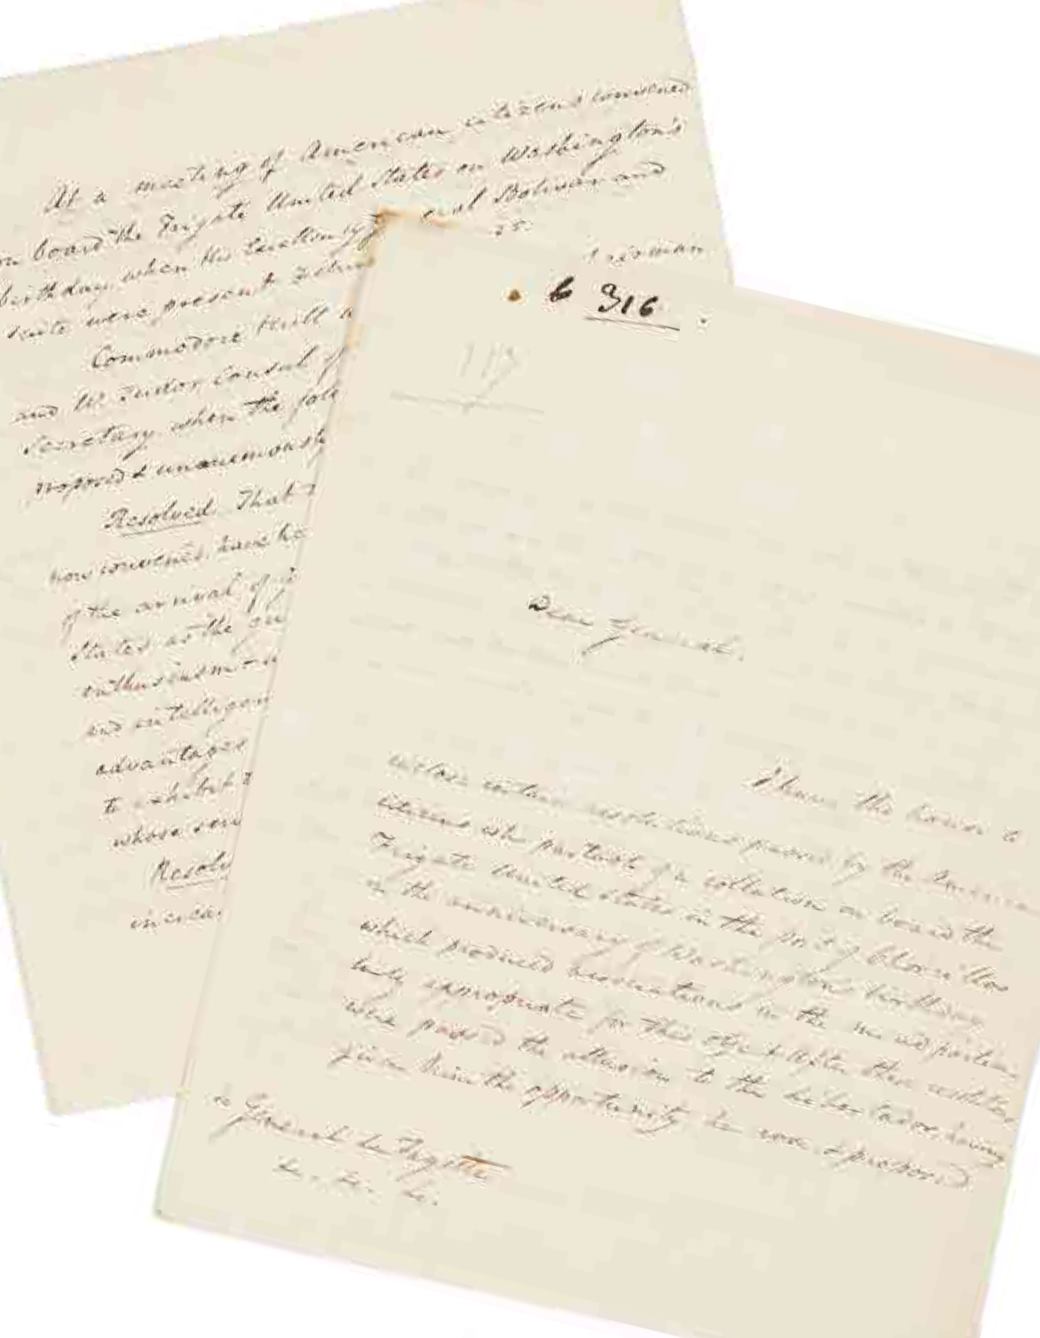 At a meeting of American citizens convened
on board the Frigate United States on Washington's
birthday, when his Excellency General Bolivar and
suite were present Febru 25.
Commodore Hull a Chairman
and W. Tudor, Consul of
Secretary when the foll
proposed & unanimously
Resolved. That
now convened, have he
of the arrival of
States as the
enthusiasm
and intelligen
advantages
to exhibit
whose serv
Resolv
increas
6 316
117
Dear General.
I have the honor to
enclose certain resolutions passed by the American
citizens who partook of a collation on board the
Frigate United States in the port of Chorrillos
on the anniversary of Washington's birthday,
which produced associations in the mind
truly appropriate for this object. After these
were passed the allusion to the Liberator, having
given him the opportunity he rose & proposed
to General La Fayette
&c. &c. &c.